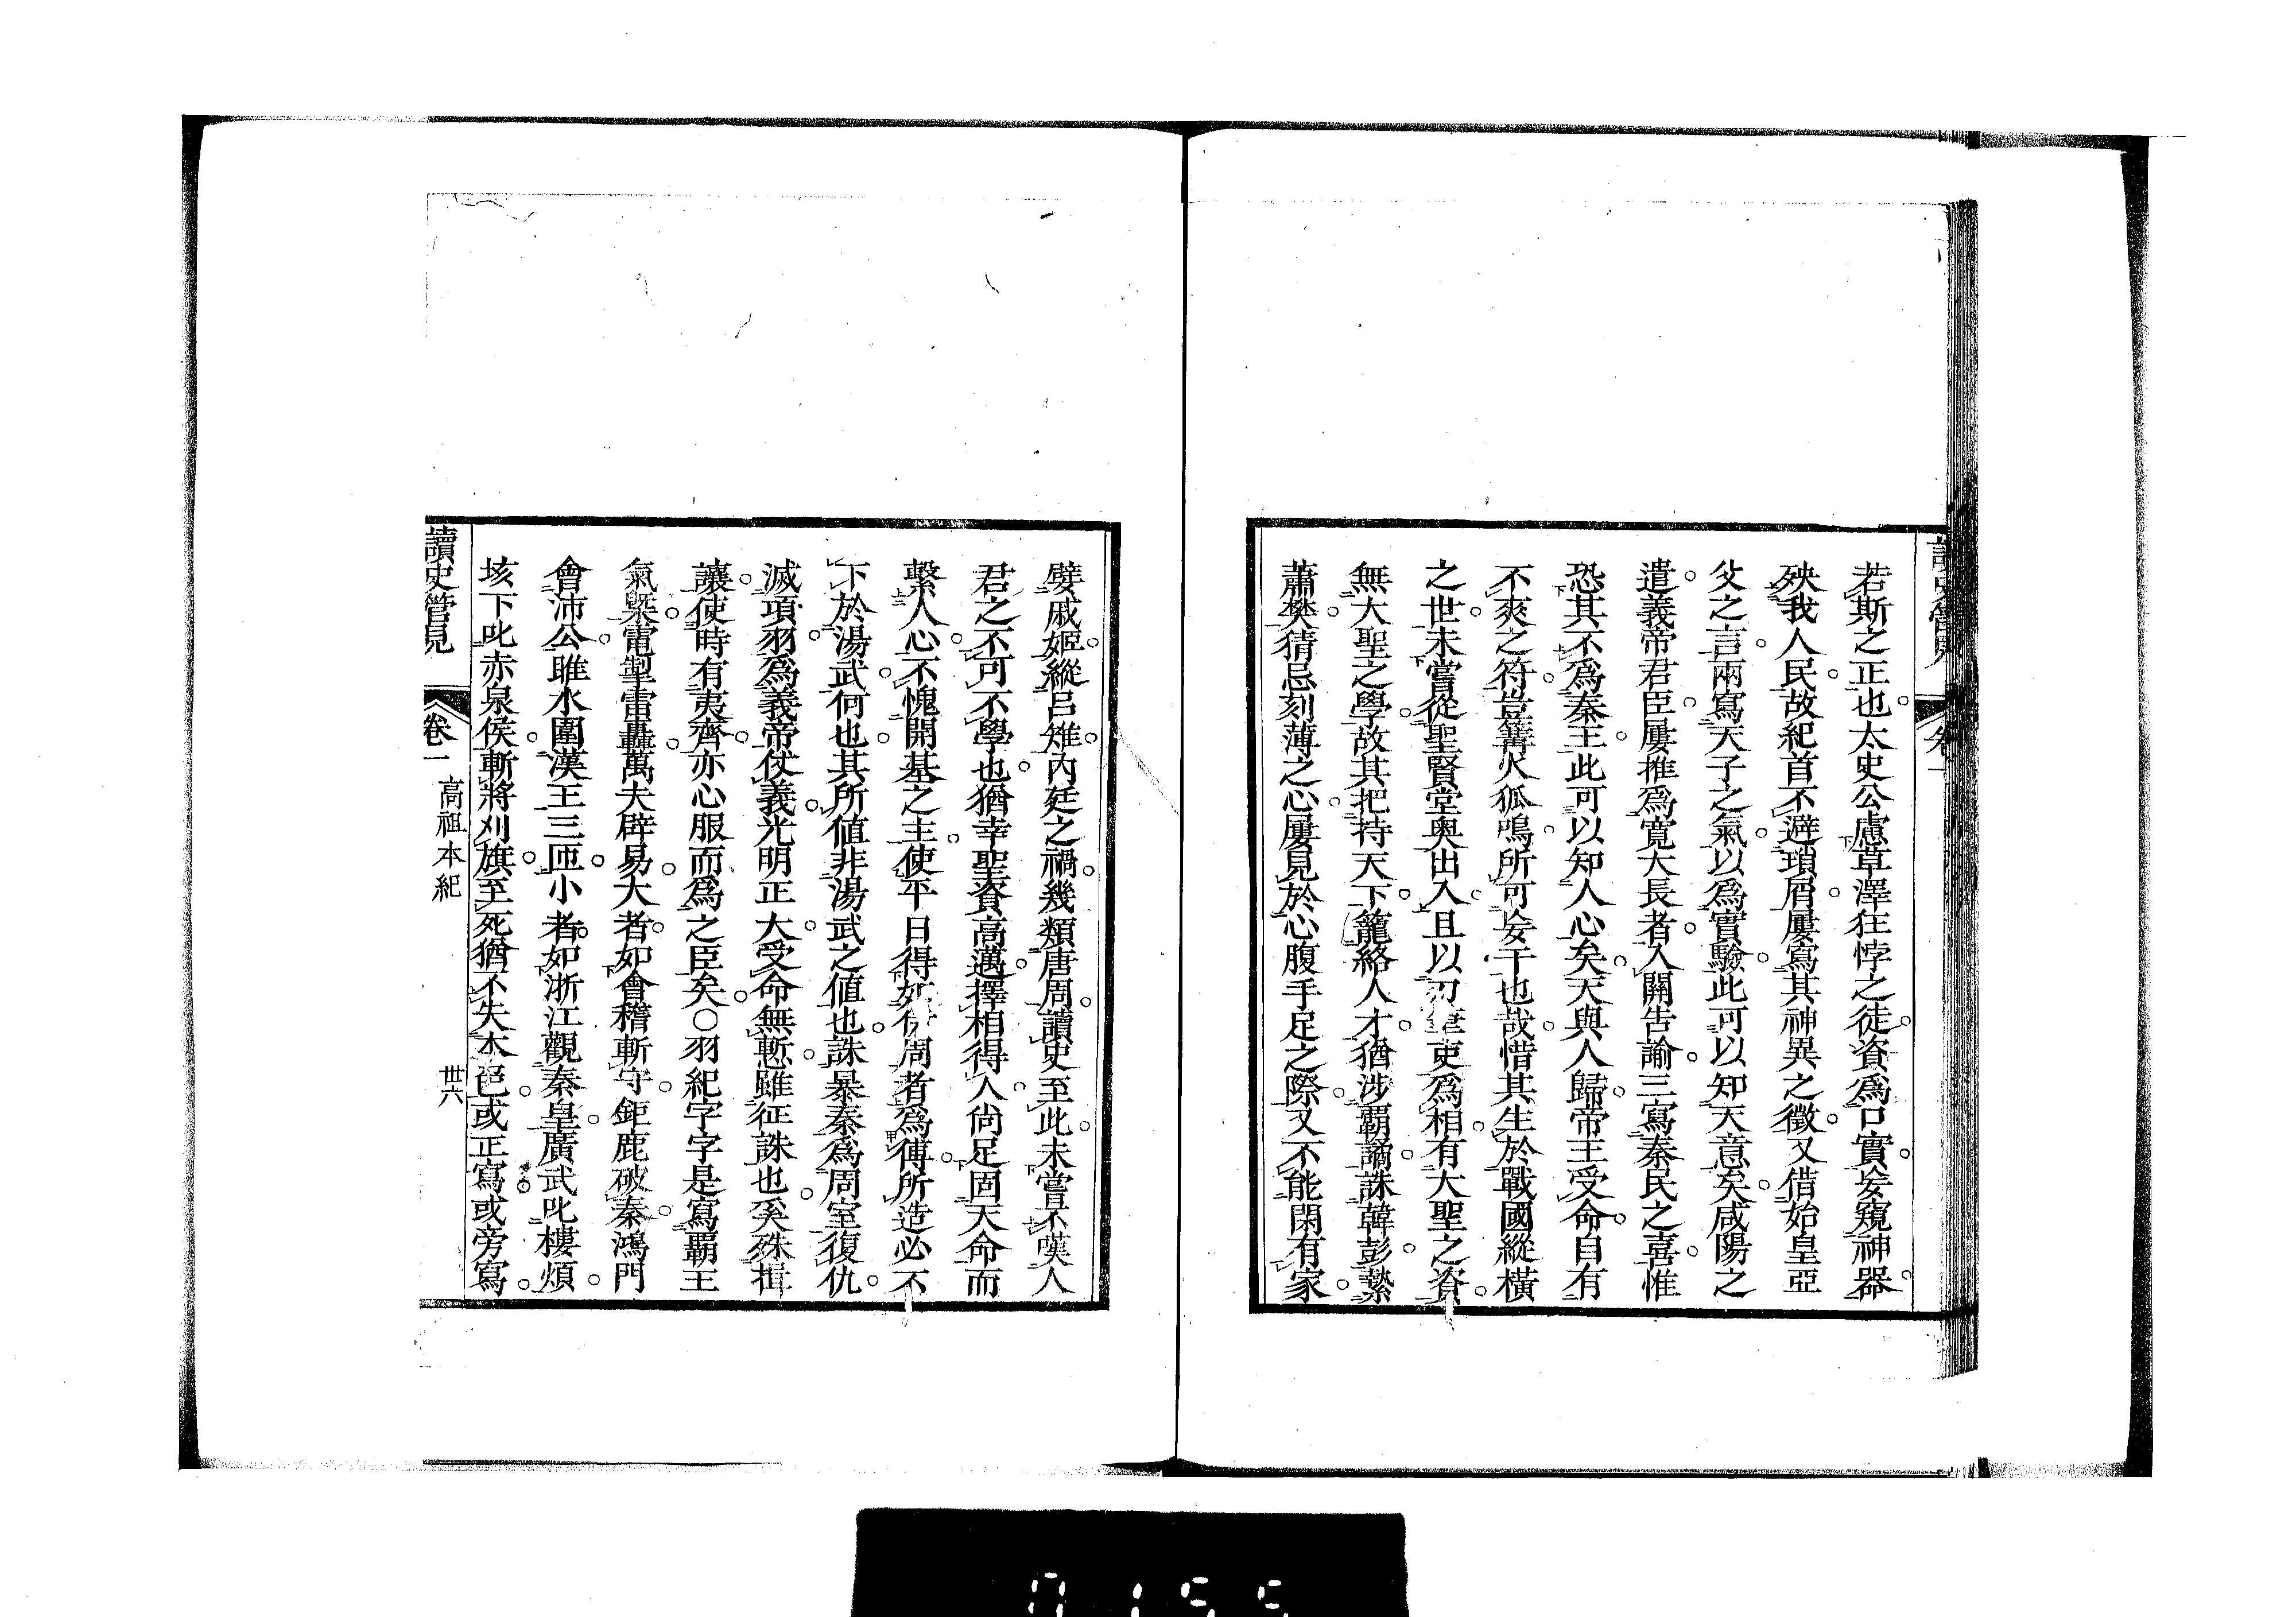 若斯之正也太史公慮草澤狂悖之徒資爲口實妄窺神器
殃我人民故紀首不避瑣屑屢寫其神異之徵又借始皇亞
父之言兩寫天子之氣以爲實驗此可以知天意矣咸陽之
遣義帝君臣屢推爲寬大長者入關告諭三寫秦民之喜惟
恐其不爲秦王此可以知人心矣天與人歸帝王受命自有
不爽之符豈篝火狐鳴所可妄干也哉惜其生於戰國縱橫
之世未嘗從聖賢堂奧出入且以刀筆吏爲相有大聖之資
無大聖之學故其把持天下籠絡人才猶涉覇譎誅韓彭縶
蕭樊猜忌刻薄之心屢見於心腹手足之際又不能閑有家
嬖戚姬縱呂雉內廷之禍幾類唐周讀史至此未嘗不嘆人
君之不可不學也猶幸聖資高邁擇相得人尙足固天命而
繫人心不愧開基之主使平日得如周者爲傅所造必不
下於湯武何也其所値非湯武之値也誅暴秦爲周室復仇
滅項羽爲義帝仗義光明正大受命無慙雖征誅也奚殊揖
讓使時有夷齊亦心服而爲之臣矣○羽紀字字是寫覇王
氣槩電掣雷轟萬夫辟易大者如會稽斬守鉅鹿破秦鴻門
會沛公睢水圍漢王三匝小者如浙江觀秦皇廣武叱樓煩
垓下叱赤泉侯斬將刈旗至死猶不失本色或正寫或旁寫
讀史管見
卷一
高祖本紀
卅六